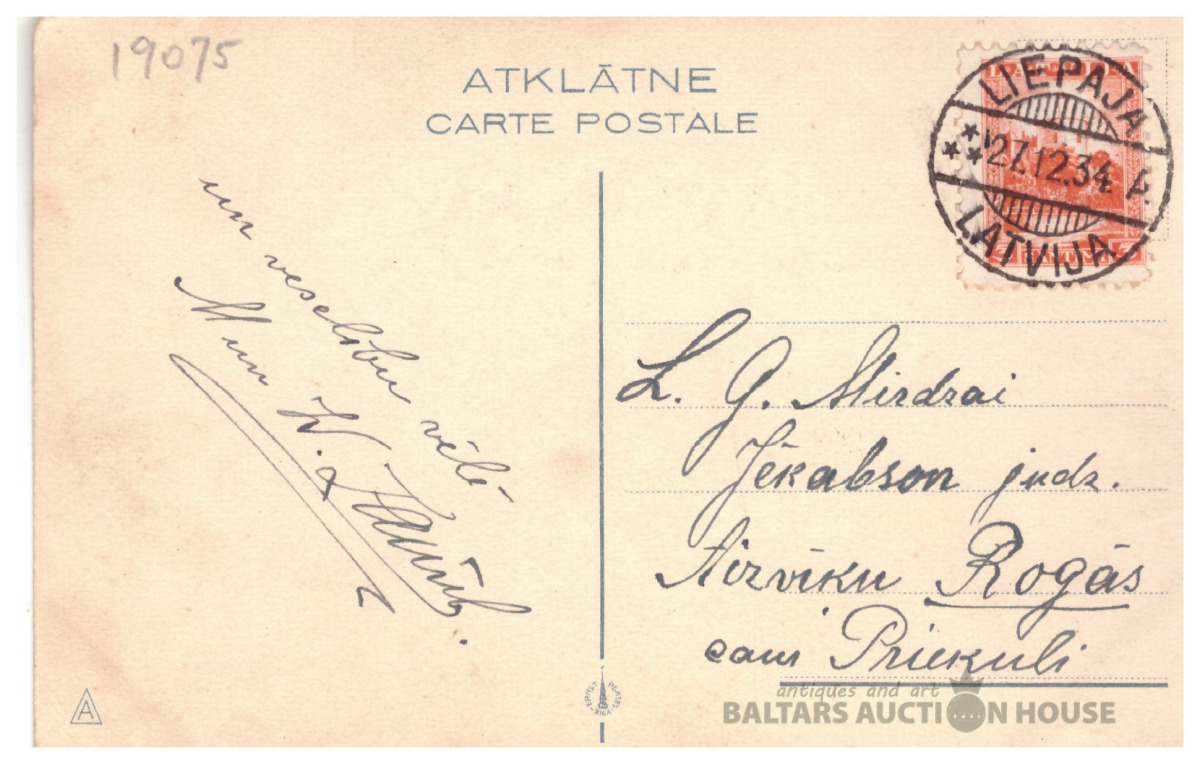 19075
ATKLĀTNE
CARTE POSTALE
LIEPAJA
27.12.34 A
LATVIJA
un veselību vēlē
M un W.
L. G. Mirdzai
Jēkabson jndz.
Aizvīķu Rogās
caur Priekuli
A
antiques and art
BALTARS AUCTION HOUSE